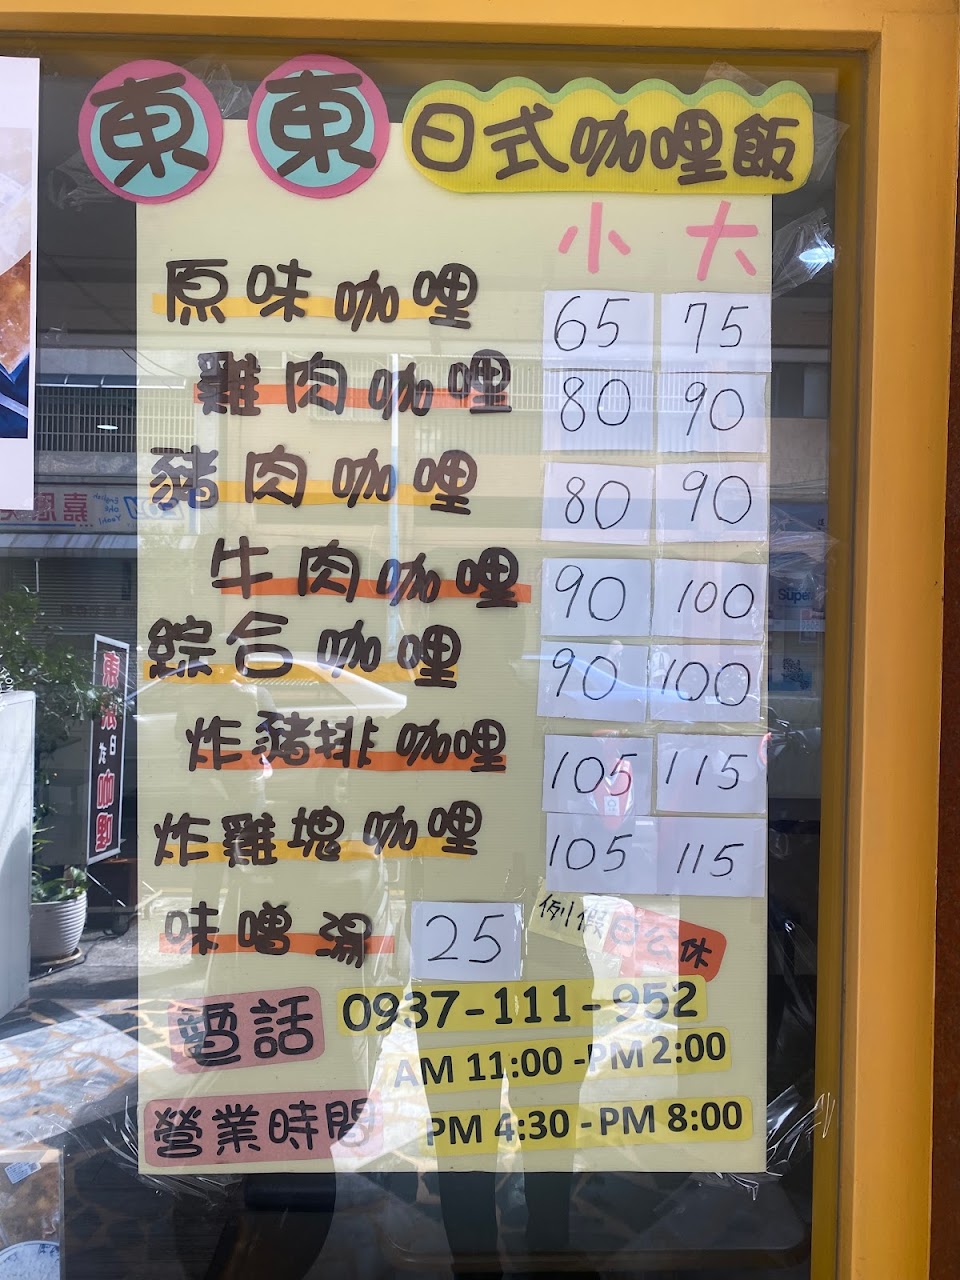 東東日式咖哩飯
小 大
原味咖哩 65 75
雞肉咖哩 80 90
豬肉咖哩 80 90
牛肉咖哩 90 100
綜合咖哩 90 100
炸豬排咖哩 105 115
炸雞塊咖哩 105 115
味噌湯 25
例假日公休
電話 0937-111-952
營業時間
AM 11:00 -PM 2:00
PM 4:30 -PM 8:00